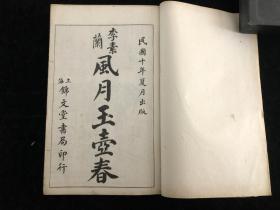 民國十年夏月出版
李素蘭
風月玉壺春
上海錦文堂書局印行